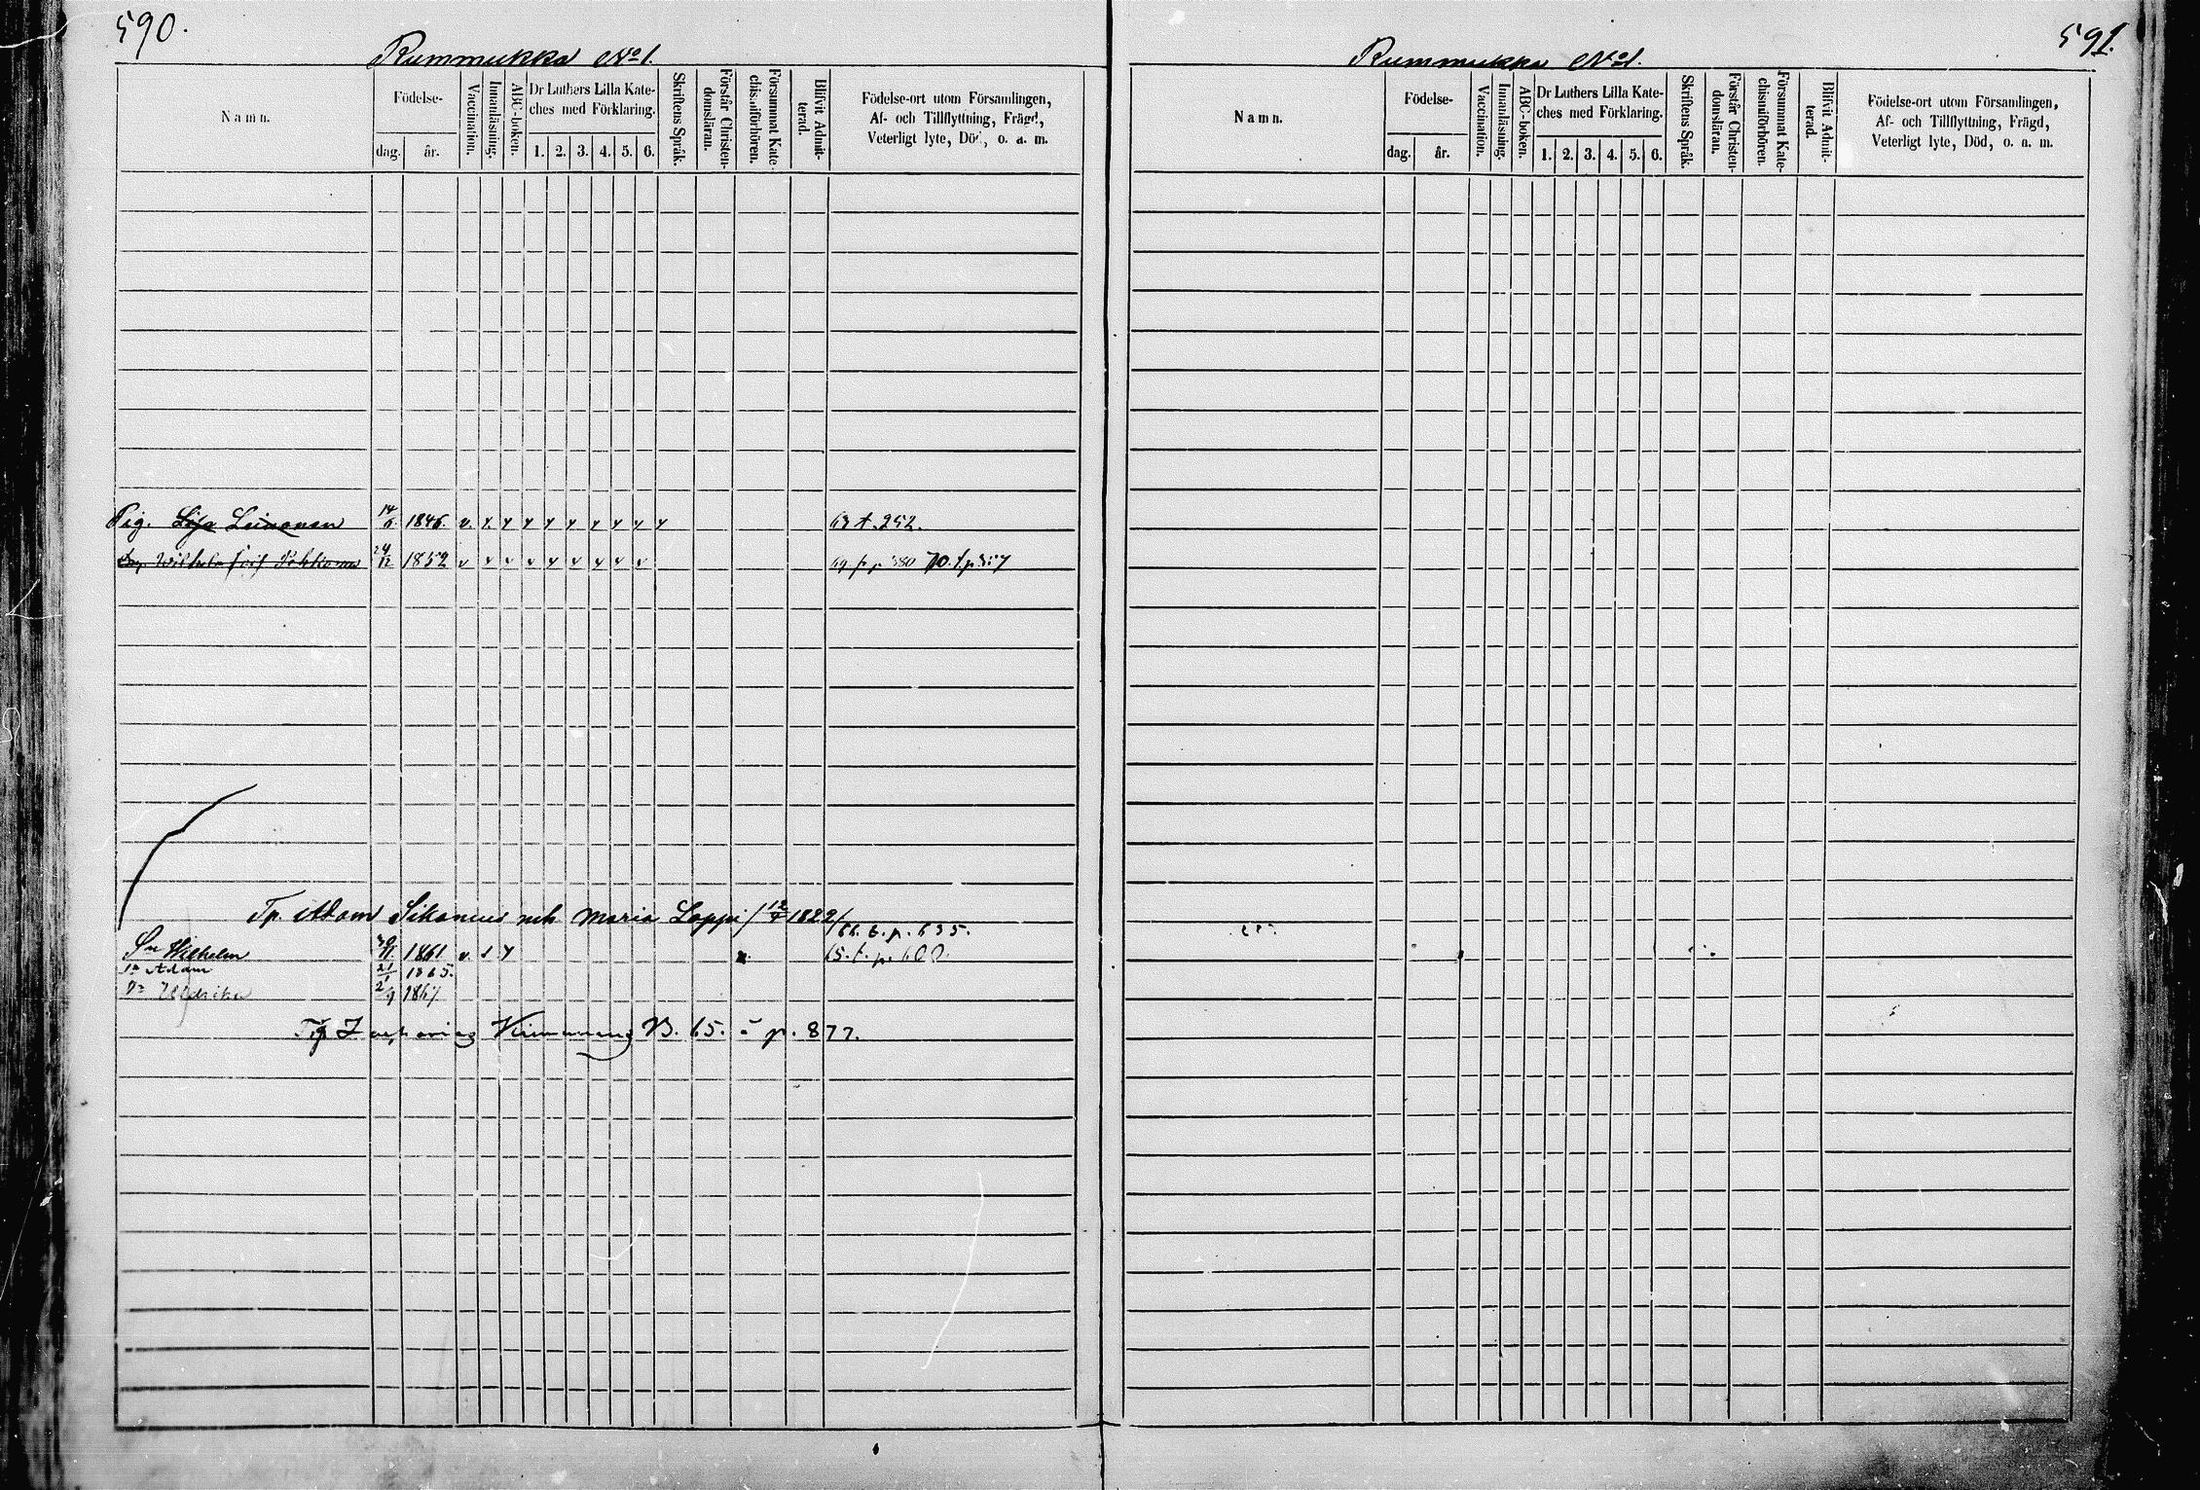 590.
Rummukka No 1.
Namn.
Födelse-
dag. år.
Vaccination.
Innanläsning.
ABC-boken.
Dr Luthers Lilla Kate-
ches med Förklaring.
1. 2. 3. 4. 5. 6.
Skriftens Språk.
Förstår Christen-
domsläran.
Försummat Kate-
chismiförhören.
Blifvit Admit-
terad.
Födelse-ort utom Församlingen,
Af- och Tillflyttning, Frägd,
Veterligt lyte, Död, o. a. m.
Pig. Lisa Leinonen 14/6 1846. v. 63 t. 252.
Wilhelm 24/12 1852 v 69 f. p 380 70. f. p
Tp. Adam Sikanens enk Maria Lappi /12/4 1822/
66. f. p. 635.
Sn Wilhelm 30/11 1861 v. 65. f. p. 600.
Sn Adam 21/1 1865.
Ulrika 2/9 1867.
Kinnunens B. 65. p. 877.
591.
Rummukka No 1.
Namn.
Födelse-
dag. år.
Vaccination.
Innanläsning.
ABC-boken.
Dr Luthers Lilla Kate-
ches med Förklaring.
1. 2. 3. 4. 5. 6.
Skriftens Språk.
Förstår Christen-
domsläran.
Försummat Kate-
chismiförhören.
Blifvit Admit-
terad.
Födelse-ort utom Församlingen,
Af- och Tillflyttning, Frägd,
Veterligt lyte, Död, o. a. m.